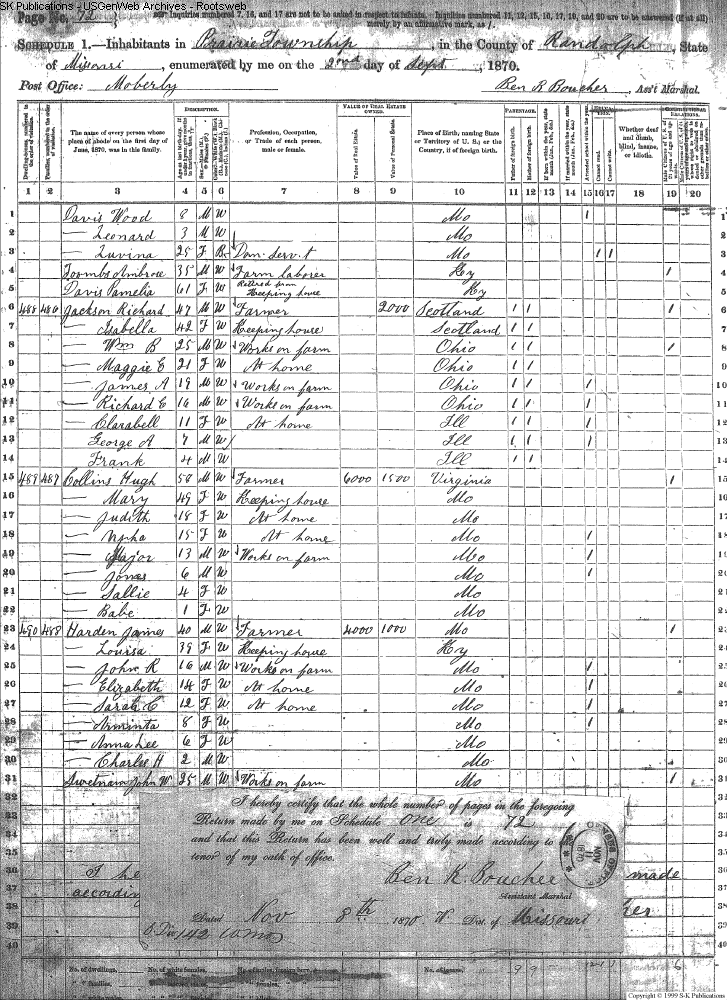 SK Publications - USGenWeb Archives - Rootsweb
Page No. 72
Inquiries numbered 7, 16, and 17 are not to be asked in respect to infants. Inquiries numbered 11, 12, 15, 16, 17, 19, and 20 are to be answered (if at all) merely by an affirmative mark, as /.
Schedule 1.—Inhabitants in Prairie Township, in the County of Randolph, State
of Missouri, enumerated by me on the 2nd day of Sept, 1870.
Post Office: Moberly
Ben K Boucher, Ass't Marshal.
Dwelling-houses, numbered in the order of visitation.
Families, numbered in the order of visitation.
The name of every person whose place of abode on the first day of June, 1870, was in this family.
Description.
Profession, Occupation, or Trade of each person, male or female.
Value of Real Estate Owned
Value of Real Estate.
Value of Personal Estate.
Place of Birth, naming State or Territory of U. S.; or the Country, if of foreign birth.
Parentage.
Father of foreign birth.
Mother of foreign birth.
Attended school within the year.
Cannot read.
Cannot write.
Whether deaf and dumb, blind, insane, or idiotic.
1 2 3 4 5 6 7 8 9 10 11 12 13 14 15 16 17 18 19 20
1 Davis Wood 8 M W Mo / 1
2 — Leonard 3 M W Mo 2
3 — Luvina 25 F B Dom. serv't Mo / / 3
4 Toombs Ambrose 35 M W Farm laborer Ky / 4
5 Davis Pamelia 61 F W Retired from Keeping house Ky 5
6 488 486 Jackson Richard 47 M W Farmer 2000 Scotland / / / 6
7 — Isabella 42 F W Keeping house Scotland / / 7
8 — Wm B 25 M W Works on farm Ohio / / / 8
9 — Maggie E 21 F W At home Ohio / / 9
10 — James A 19 M W Works on farm Ohio / / / 10
11 — Richard C 16 M W Works on farm Ohio / / / 11
12 — Clarabell 11 F W At home Ill / / / 12
13 — George A 7 M W Ill / / / 13
14 — Frank 4 M W Ill / / 14
15 489 487 Collins Hugh 58 M W Farmer 6000 1500 Virginia / 15
16 — Mary 49 F W Keeping house Mo 16
17 — Judith 18 F W At home Mo 17
18 — 15 F W At home Mo / 18
19 — Major 13 M W Works on farm Mo / 19
20 — Jones 6 M W Mo / 20
21 — Sallie 4 F W Mo 21
22 — Babe 1 F W Mo 22
23 490 488 Harden James 40 M W Farmer 4000 1000 Mo / 23
24 — Louisa 39 F W Keeping house Ky 24
25 — John R 16 M W Works on farm Mo / 25
26 — Elizabeth 14 F W At home Mo / 26
27 — Sarah C 12 F W At home Mo / 27
28 — Arminta 8 F W Mo / 28
29 — Anna Lee 6 F W Mo 29
30 — Charles H 2 M W Mo 30
31 Swetnam John W 25 M W Works on farm Mo / 31
32
33
34
35
36
37
38
39
40
I hereby certify that the whole number of pages in the foregoing
Return made by me on Schedule One is 72
and that this Return has been well and truly made according to
tenor of my oath of office.
Ben K. Boucher
Assistant Marshal
Dated Nov 8th 1870 W. Dist. of Missouri
NOV 11 1870
I he
made
according
No. of dwellings,
No. of white females,
No. of males, foreign born,
Copyright © 1999 S-K Publications